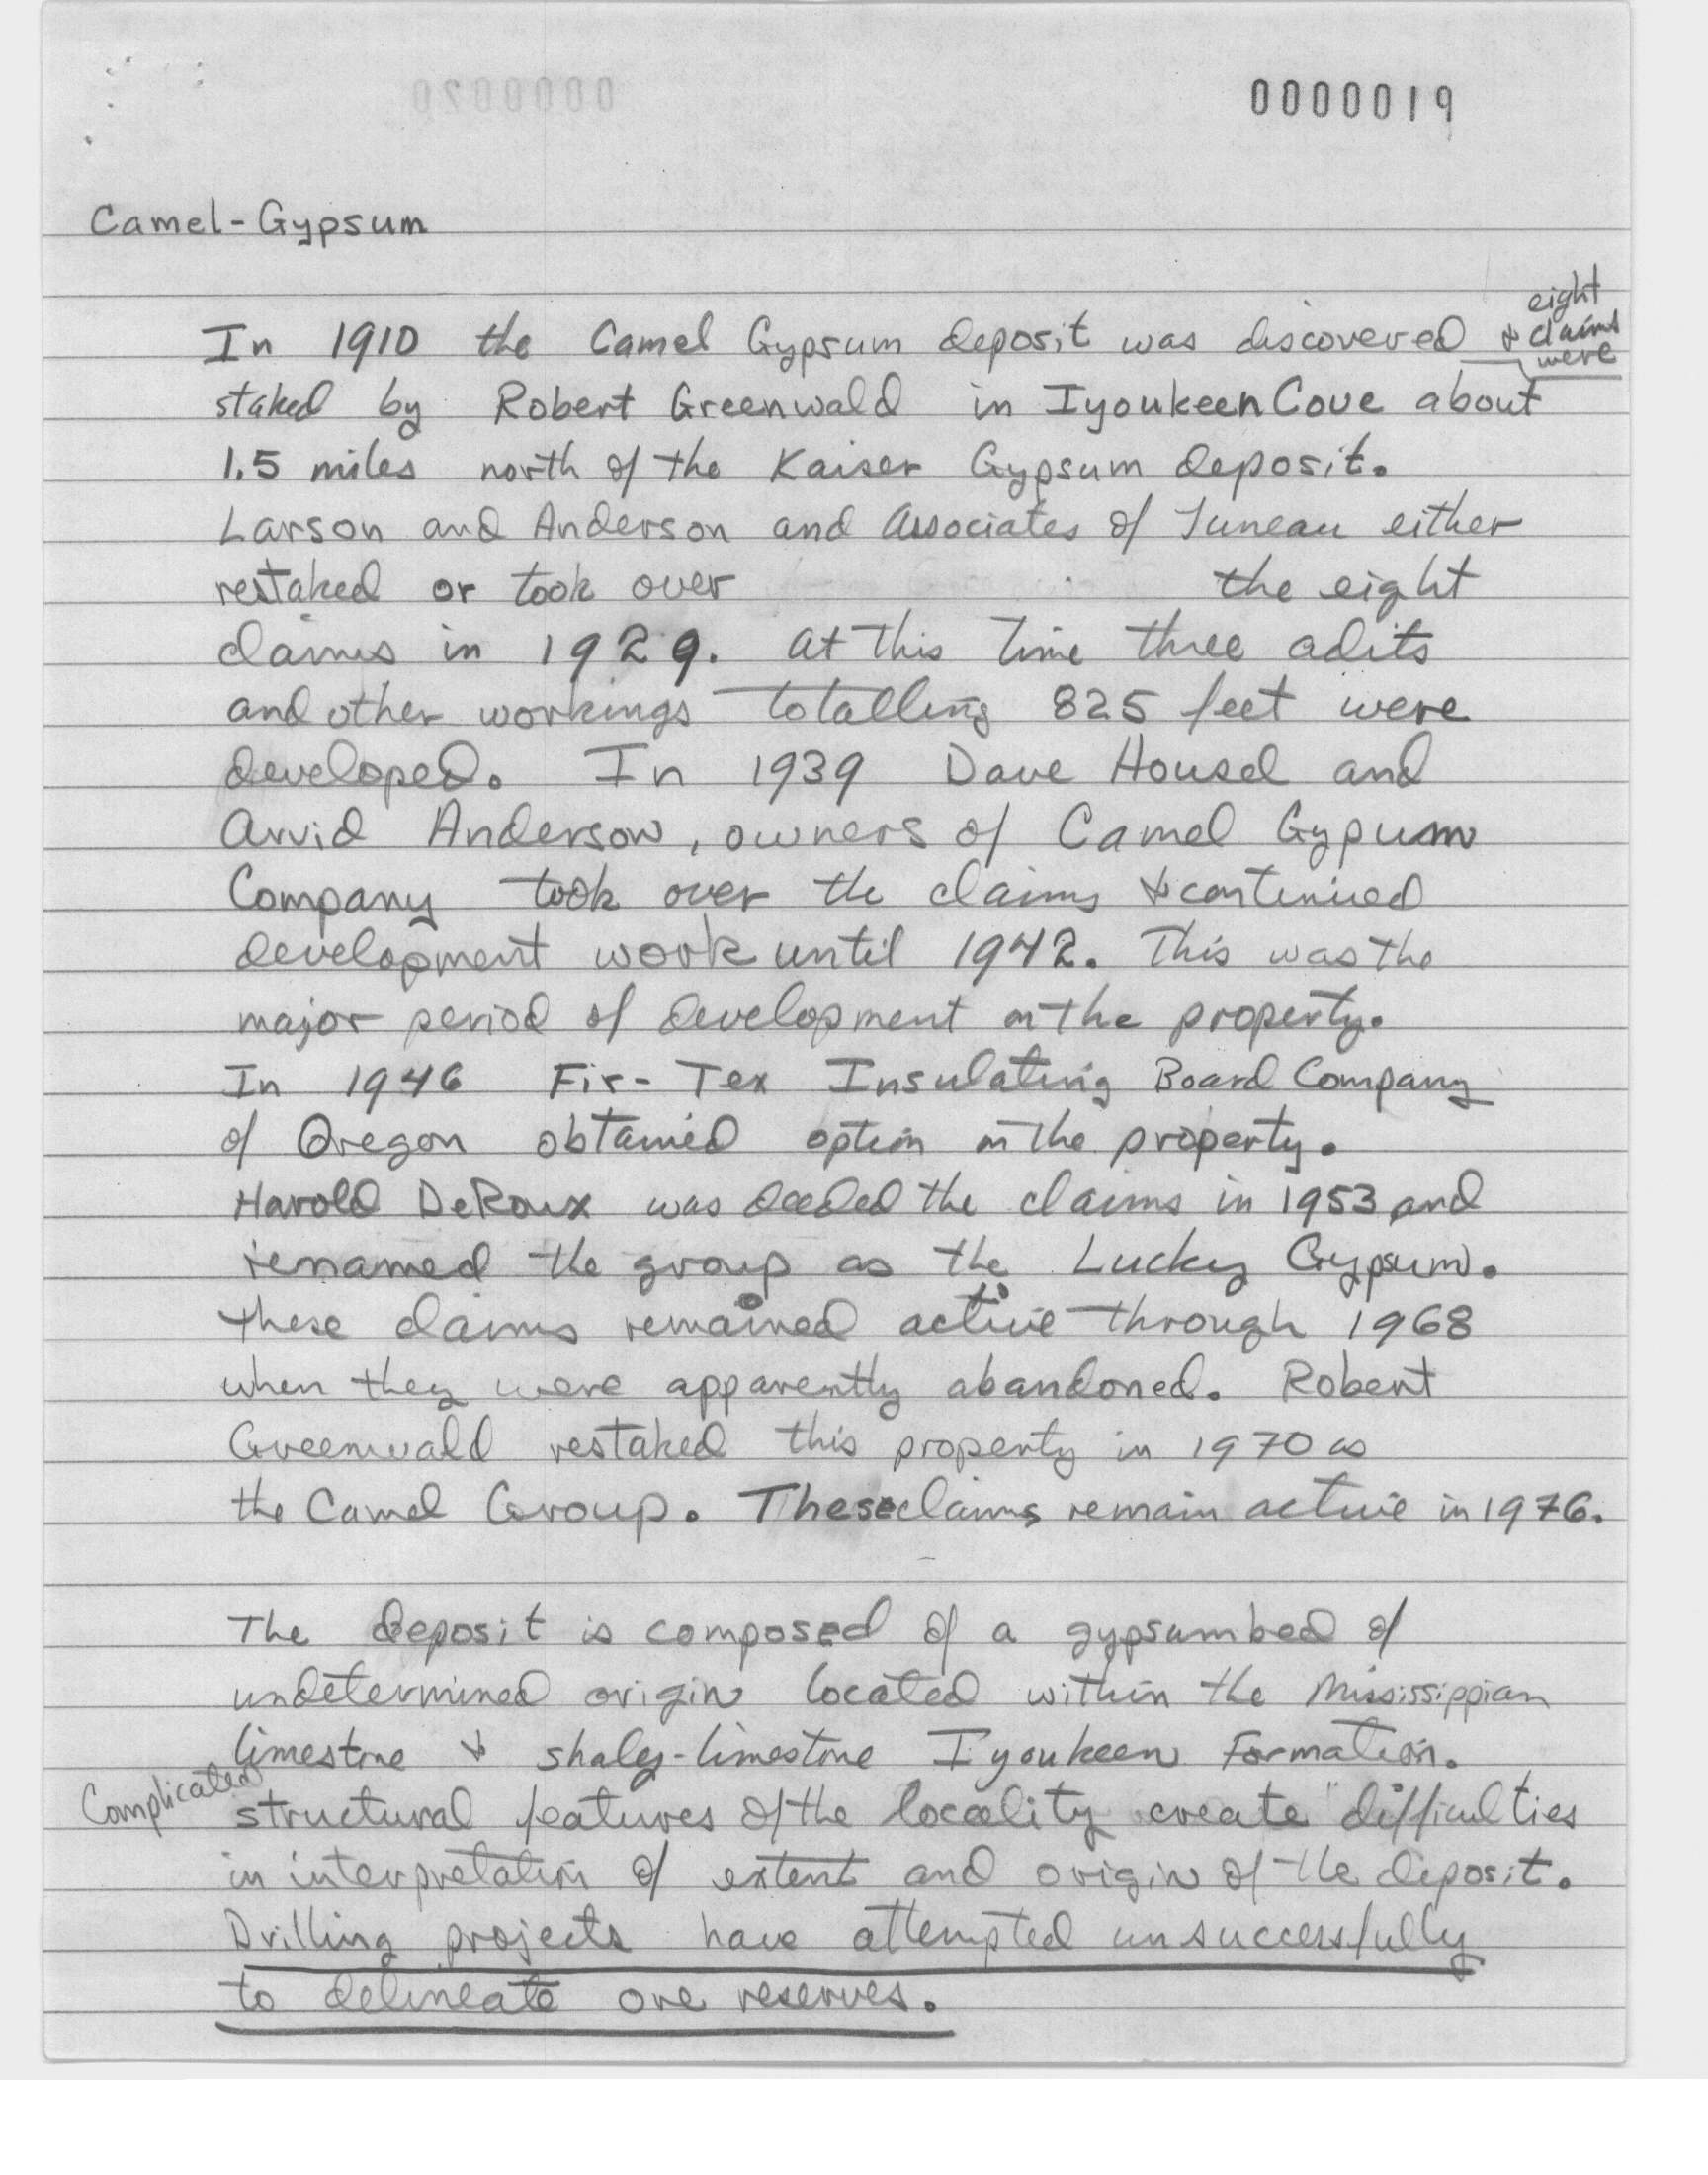 0000019
Camel-Gypsum
In 1910 the Camel Gypsum deposit was discovered & eight claims were
staked by Robert Greenwald in Iyoukeen Cove about
1.5 miles north of the Kaiser Gypsum deposit.
Larson and Anderson and Associates of Juneau either
restaked or took over the eight
claims in 1929. At this time three adits
and other workings totalling 825 feet were
developed. In 1939 Dave Housel and
Arvid Anderson, owners of Camel Gypum
Company took over the claims & continued
development work until 1942. This was the
major period of development on the property.
In 1946 Fir-Tex Insulating Board Company
of Oregon obtained option on the property.
Harold DeRoux was deeded the claims in 1953 and
renamed the group as the Lucky Gypsum.
These claims remained active through 1968
when they were apparently abandoned. Robert
Greenwald restaked this property in 1970 as
the Camel Group. These claims remain active in 1976.
The deposit is composed of a gypsum bed of
undetermined origin located within the Mississippian
limestone & shaley-limestone Iyoukeen Formation.
Complicated structural features of the locality create difficulties
in interpretation of extent and origin of the deposit.
Drilling projects have attempted unsuccessfully
to delineate ore reserves.